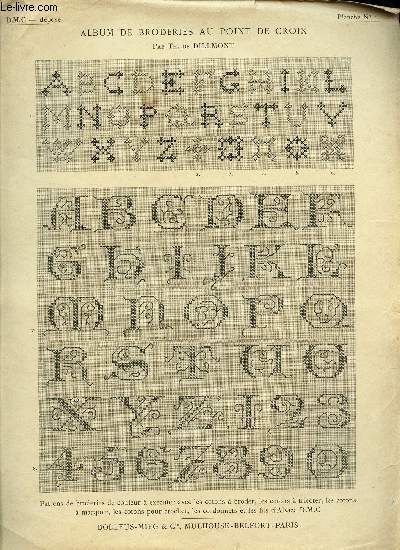 D.M.C — déposé
Planche No
ALBUM DE BRODERIES AU POINT DE CROIX
PAR TH. DE DILLMONT
A B C D E F G H I K L
M N O P Q R S T U V
W X Y Z
A B C D E F
G H I J K L
M N O P Q
R S T U V
X Y Z 1 2 3
4 5 6 7 8 9 0
Patrons de broderies de couleur à exécuter avec les cotons à broder, les cotons à tricoter, les cotons
à marquer, les cotons pour crochet, les cordonnets et les fils d'Alsace D.M.C
DOLLFUS-MIEG & Cie, MULHOUSE-BELFORT-PARIS